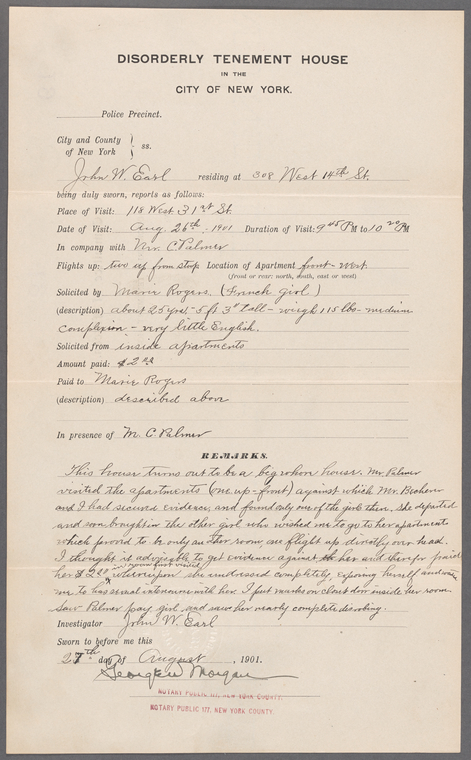 DISORDERLY TENEMENT HOUSE
IN THE
CITY OF NEW YORK.
Police Precinct.
City and County
of New York } ss.
John W. Earl residing at 308 West 14th St.
being duly sworn, reports as follows:
Place of Visit: 118 West 31st St.
Date of Visit: Aug. 26th, 1901 Duration of Visit: 9 45 PM to 10 20 PM
In company with Mr. C. Palmer
Flights up: two up from stoop Location of Apartment front - west
(front or rear: north, south, east or west)
Solicited by Marie Rogers. (French girl)
(description) about 25 yrs - 5 ft 3" tall - weigh 115 lbs - medium
complexion - very little English.
Solicited from inside apartments
Amount paid: $2 00
Paid to Marie Rogers
(description) described above
In presence of M. C. Palmer
REMARKS.
This house turns out to be a big whore house. Mr. Palmer
visited the apartments (one up - front) against which Mr.
and I had secure evidence, and found only one of the girls there. She departed
and soon brought in the other girl who wished me to go to her apartment
which proved to be only another room, one flight up directly over head.
I thought it advisable to get evidence against her and therefor
her $2 00 in room first visited whereupon she undressed completely, exposing herself and
me to have sexual intercourse with her. I put marks on closet door inside her room.
Saw Palmer pay girl and saw her nearly complete disrobing.
Investigator John W. Earl
Sworn to before me this
27th day of August, 1901.
George W Morgan
NOTARY PUBLIC 117, NEW YORK COUNTY.
NOTARY PUBLIC 117, NEW YORK COUNTY.